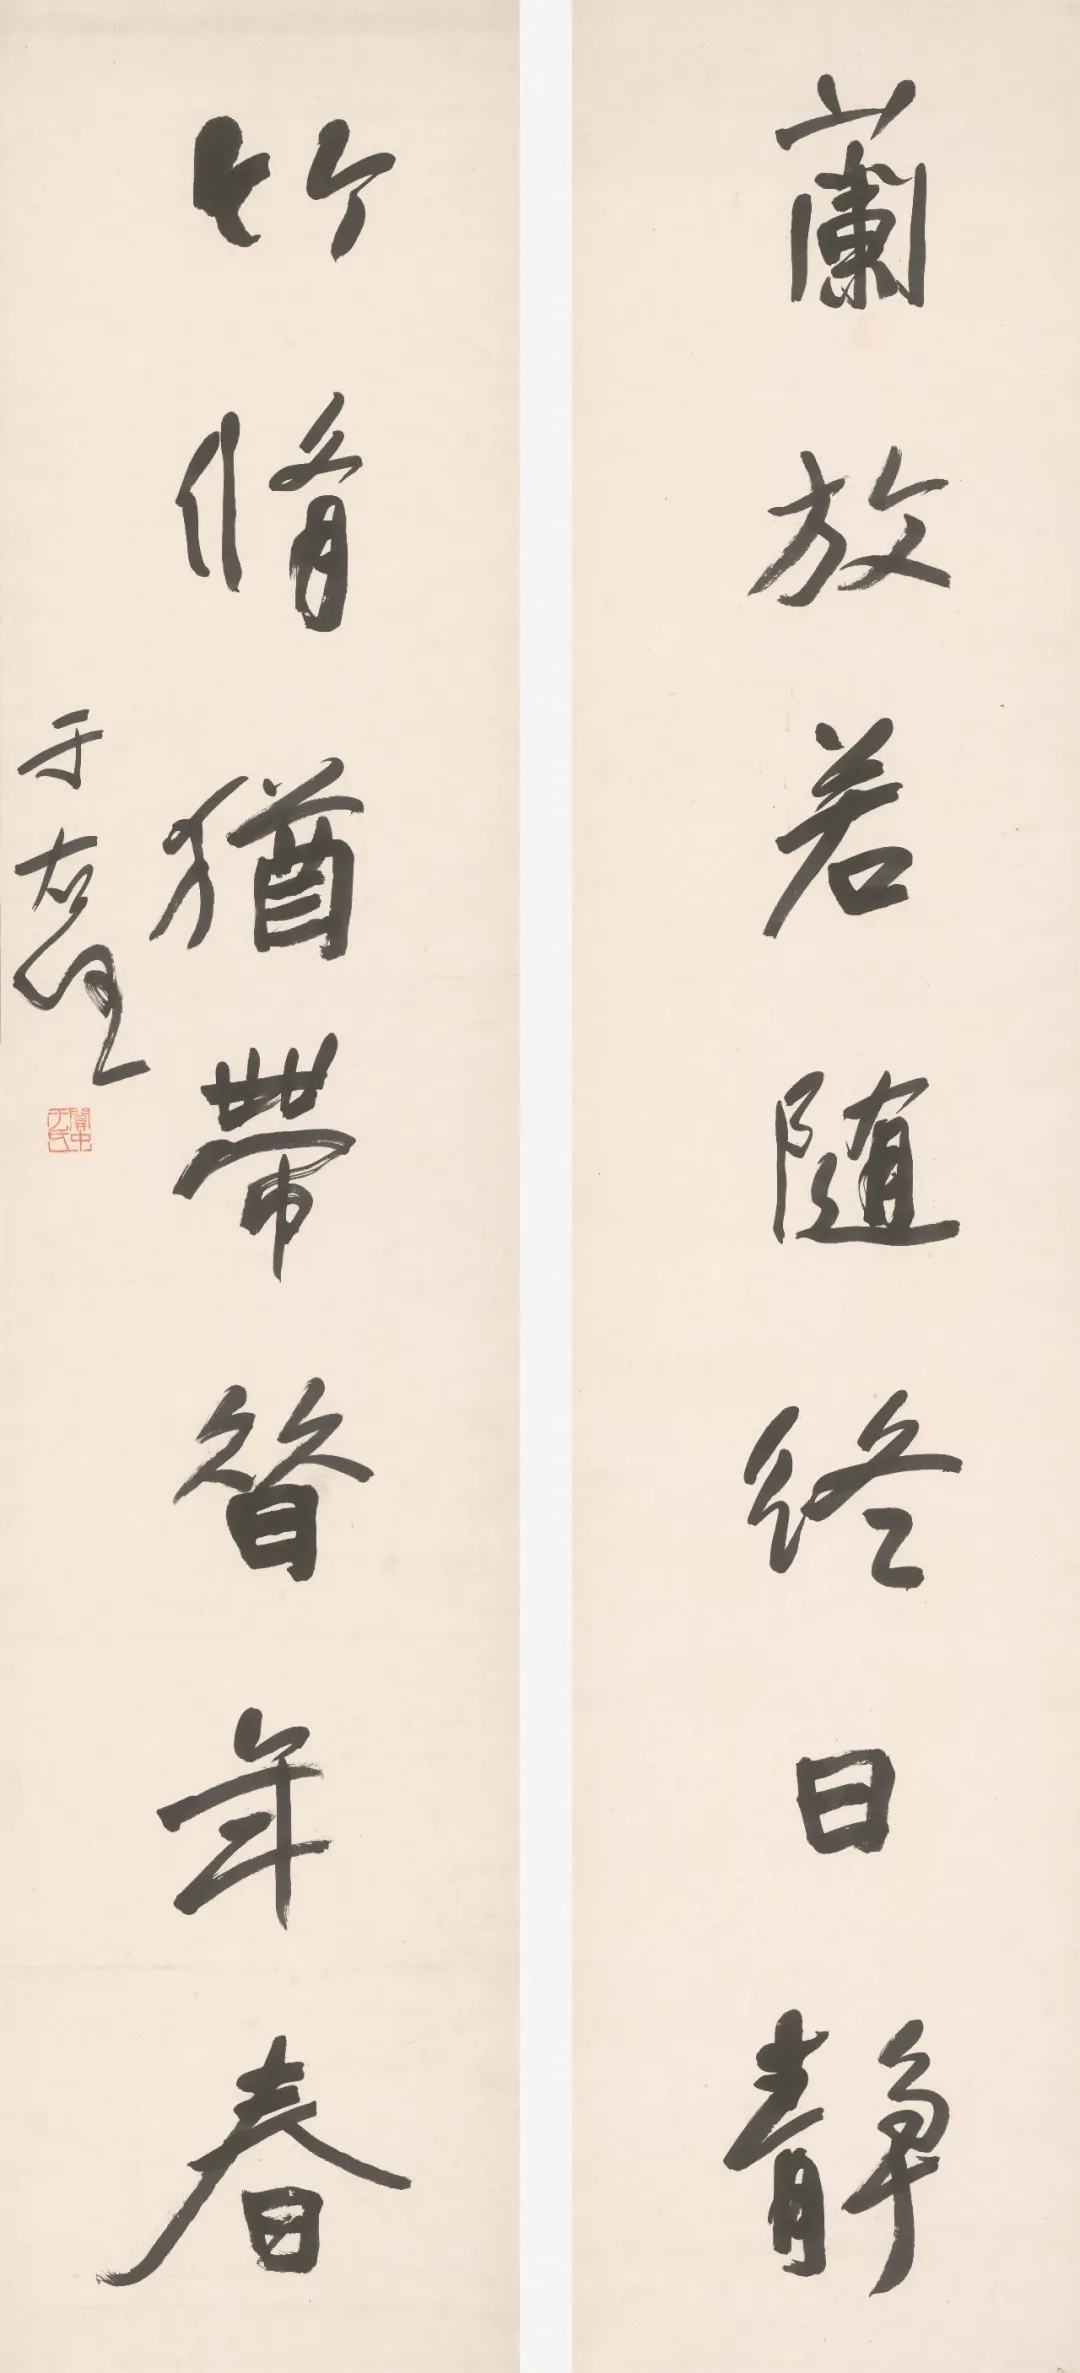 蘭放若随終日静
竹脩猶帶昔年春
于右任
關中于氏